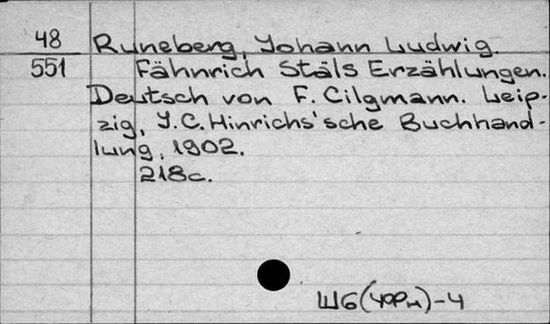 48
551
Runeberg, Johann Ludwig.
Fähnrich Stäls Erzählungen.
Deutsch von F. Eilgmann. Leip-
zig, J.C. Hinrichs'sche Buchhand-
lung, 1902.
218c.
Ш6(4РРн)-4